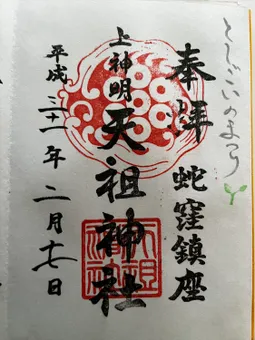 としごいのまつり
奉拝 蛇窪鎮座
上神明
天祖神社
平成三十一年二月十七日
天祖神社